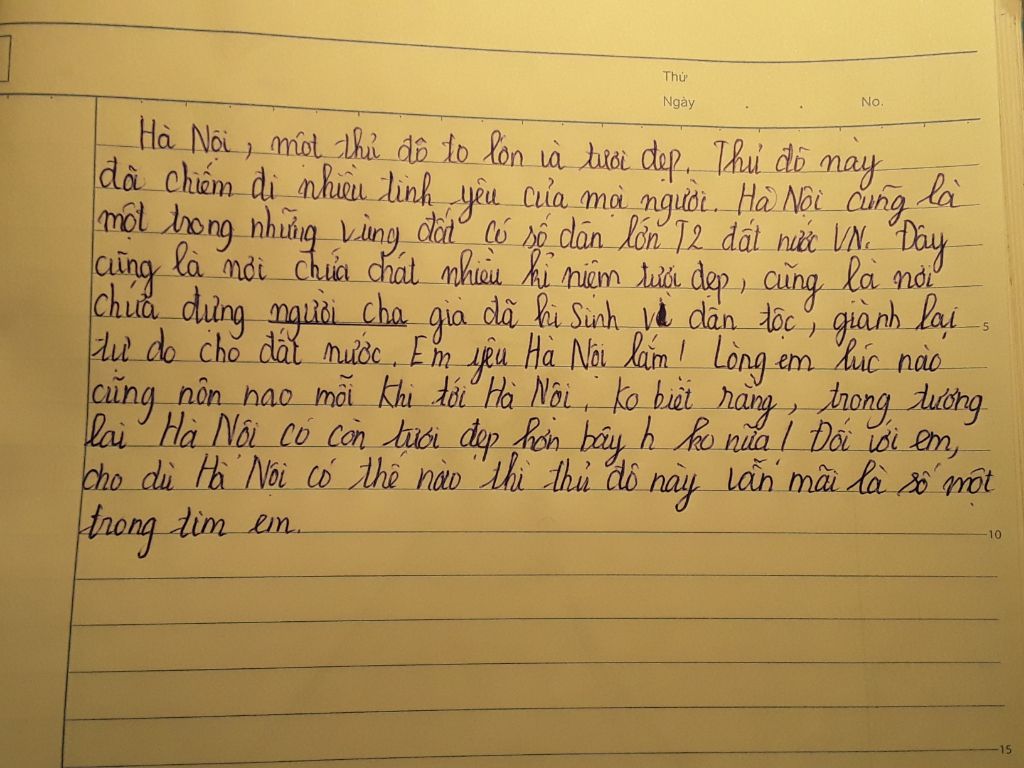 Thứ
Ngày . . No.
Hà Nội, một thủ đô to lớn và tươi đẹp. Thủ đô này
đã chiếm đi nhiều tình yêu của mọi người. Hà Nội cũng là
một trong những vùng đất có số dân lớn T2 đất nước VN. Đây
cũng là nơi chứa chát nhiều kỉ niệm tươi đẹp, cũng là nơi
chứa đựng người cha già đã hi sinh vì dân tộc, giành lại 5
tự do cho đất nước. Em yêu Hà Nội lắm! Lòng em lúc nào
cũng nôn nao mỗi khi tới Hà Nội. Ko biết rằng, trong tương
lai Hà Nội có còn tươi đẹp hơn bây h ko nữa! Đối với em,
cho dù Hà Nội có thế nào thì thủ đô này vẫn mãi là số một
trong tim em. 10
15